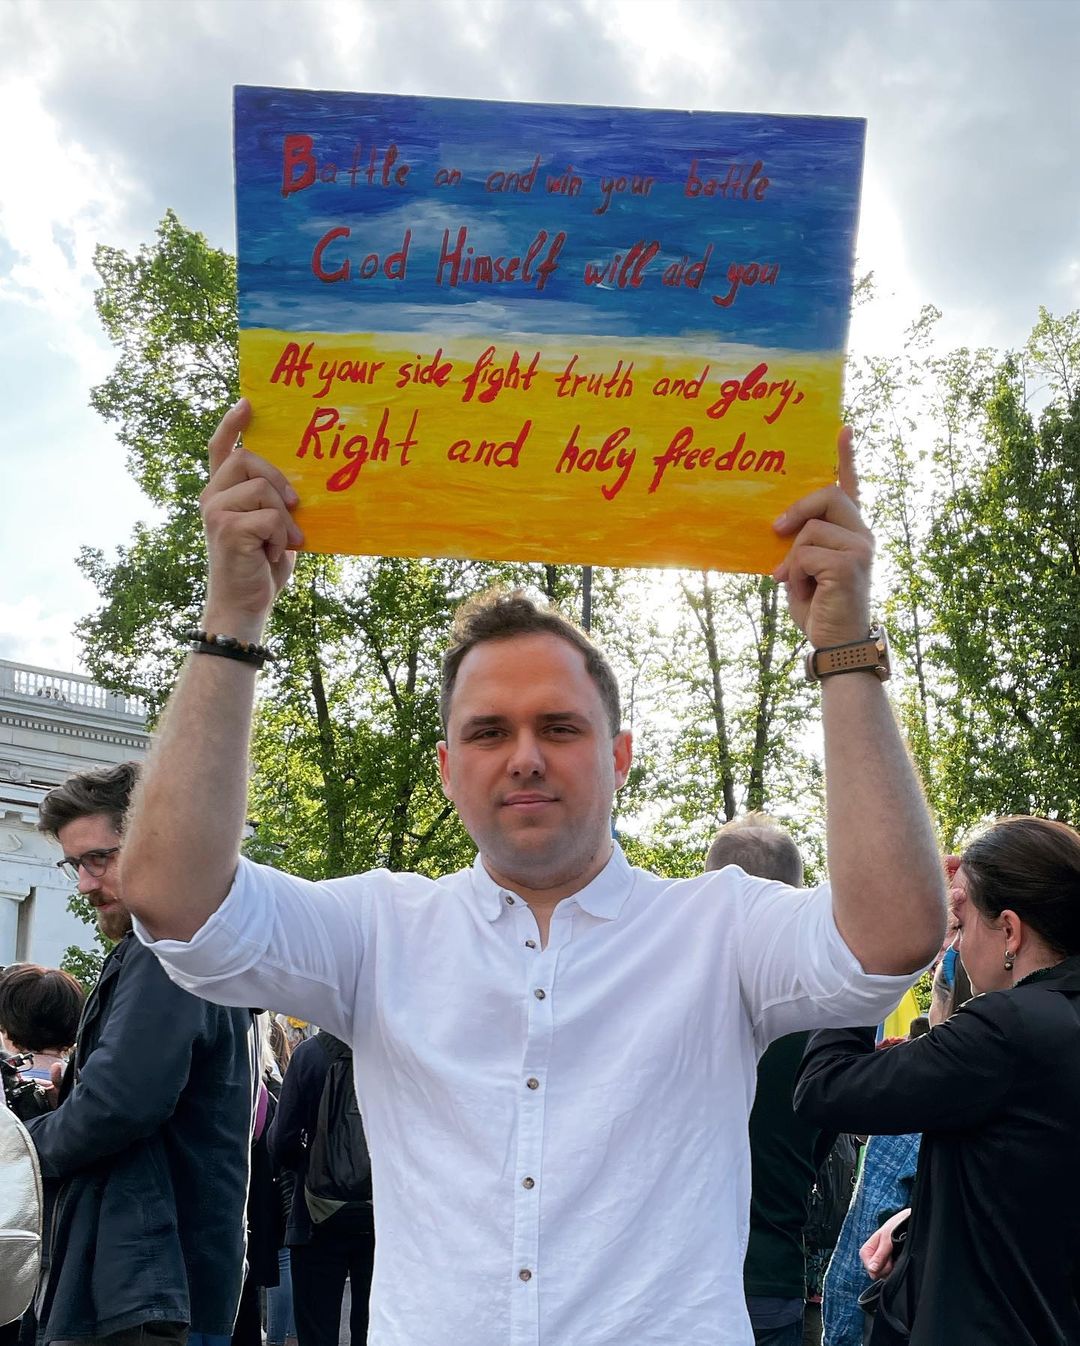 Battle on and win your battle
God Himself will aid you
At your side fight truth and glory,
Right and holy freedom.